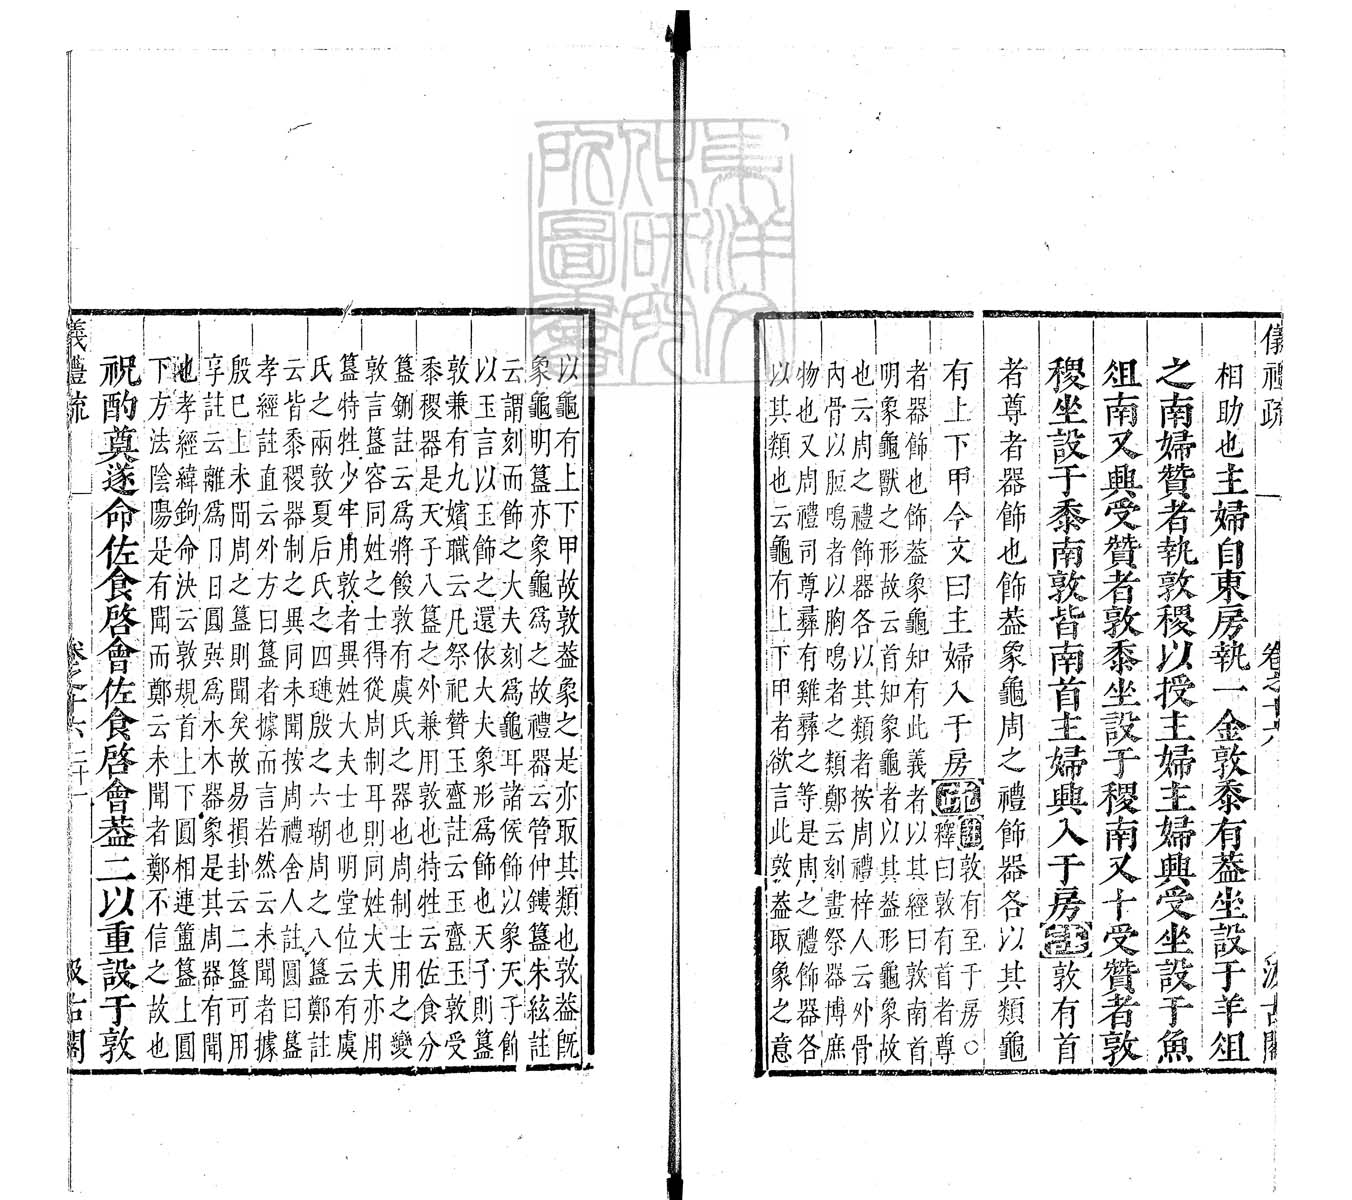 儀禮疏 卷之十六 汲古閣
相助也主婦自東房執一金敦黍有葢坐設于羊俎
之南婦贊者執敦稷以授主婦主婦興受坐設于魚
俎南又興受贊者敦黍坐設于稷南又十受贊者敦
稷坐設于黍南敦皆南首主婦興入于房註敦有首
者尊者器飾也飾葢象龜周之禮飾器各以其類龜
有上下甲今文曰主婦入于房疏註敦有至于房○
釋曰敦有首者尊
者器飾也飾葢象龜知有此義者以其經曰敦南首
明象龜獸之形故云首知象龜者以其葢形龜象故
也云周之禮飾器各以其類者按周禮梓人云外骨
內骨以脰鳴者以胸鳴者之類鄭云刻畫祭器博庶
物也又周禮司尊彝有雞彝之等是周之禮飾器各
以其類也云龜有上下甲者欲言此敦葢取象之意
以龜有上下甲故敦葢象之是亦取其類也敦葢旣
象龜明簋亦象龜爲之故禮器云管仲鏤簋朱絃註
云謂刻而飾之大夫刻爲龜耳諸侯飾以象天子飾
以玉言以玉飾之還依大夫象形爲飾也天子則簋
敦兼有九嬪職云凡祭祀贊玉齍註云玉齍玉敦受
黍稷器是天子八簋之外兼用敦也特牲云佐食分
簋鉶註云爲將餕敦有虞氏之器也周制士用之變
敦言簋容同姓之士得從周制耳則同姓大夫亦用
簋特牲少牢用敦者異姓大夫士也明堂位云有虞
氏之兩敦夏后氏之四璉殷之六瑚周之八簋鄭註
云皆黍稷器制之異同未聞按周禮舍人註圓曰簋
孝經註直云外方曰簋者據而言若然云未聞者據
殷已上未聞周之簋則聞矣故易損卦云二簋可用
享註云離爲日日圓巽爲木木器象是其周器有聞
也孝經緯鉤命決云敦規首上下圓相連簠簋上圓
下方法陰陽是有聞而鄭云未聞者鄭不信之故也
祝酌奠遂命佐食啓會佐食啓會葢二以重設于敦
儀禮疏 卷之十六 二十一 汲古閣
東洋文化研究所圖書